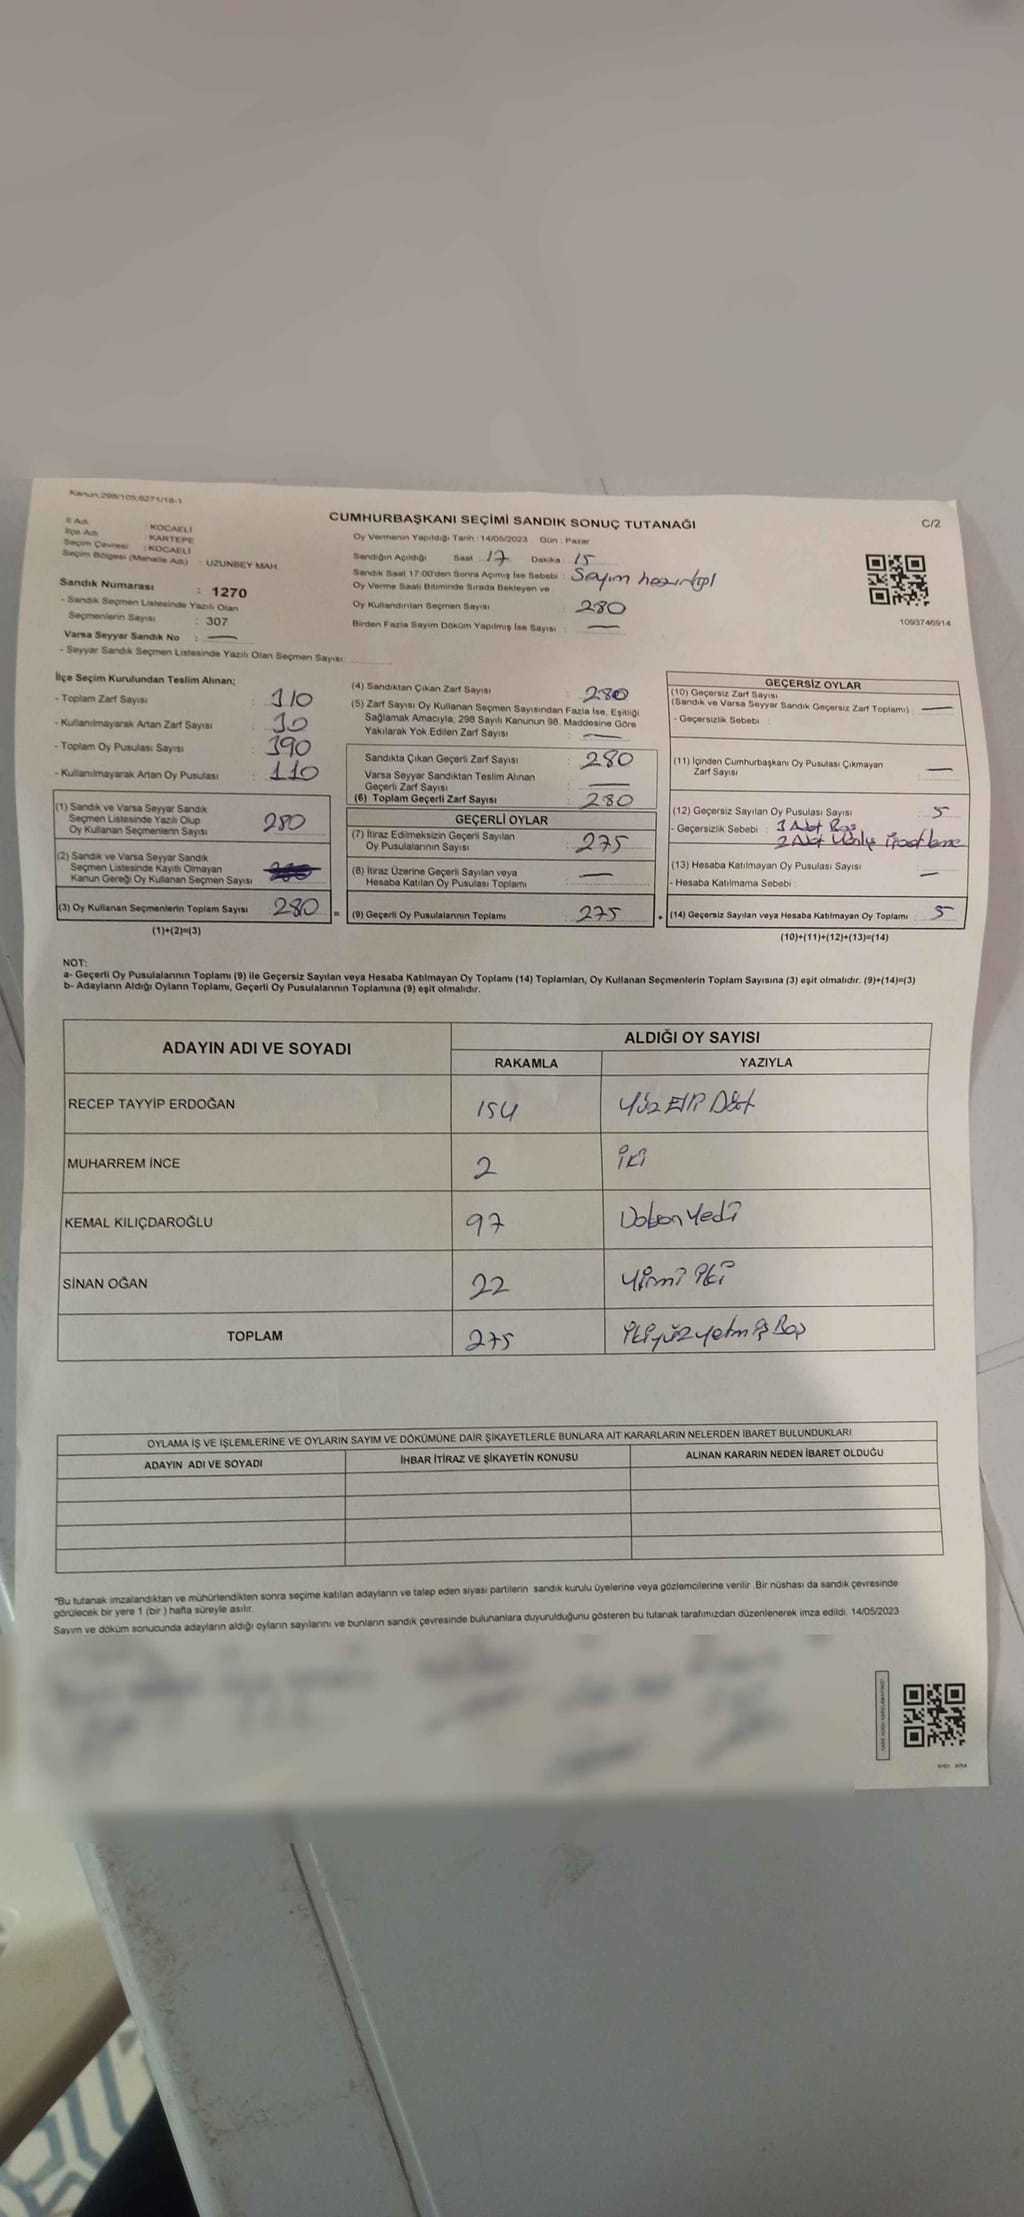 Kanun;298/105,6271/18-1
CUMHURBAŞKANI SEÇİMİ SANDIK SONUÇ TUTANAĞI
C/2
İl Adı : KOCAELİ
İlçe Adı : KARTEPE
Seçim Çevresi : KOCAELİ
Seçim Bölgesi (Mahalle Adı) : UZUNBEY MAH.
Sandık Numarası : 1270
- Sandık Seçmen Listesinde Yazılı Olan
Seçmenlerin Sayısı : 307
Varsa Seyyar Sandık No : —
- Seyyar Sandık Seçmen Listesinde Yazılı Olan Seçmen Sayısı:
Oy Vermenin Yapıldığı Tarih : 14/05/2023 Gün : Pazar
Sandığın Açıldığı Saat : 17 Dakika : 15
Sandık Saat 17:00'den Sonra Açmış İse Sebebi : Sayım
Oy Verme Saati Bitiminde Sırada Bekleyen ve
Oy Kullandırılan Seçmen Sayısı : 280
Birden Fazla Sayım Döküm Yapılmış İse Sayısı : —
1093746914
İlçe Seçim Kurulundan Teslim Alınan;
- Toplam Zarf Sayısı : 310
- Kullanılmayarak Artan Zarf Sayısı : 30
- Toplam Oy Pusulası Sayısı : 390
- Kullanılmayarak Artan Oy Pusulası : 110
(1) Sandık ve Varsa Seyyar Sandık
Seçmen Listesinde Yazılı Olup
Oy Kullanan Seçmenlerin Sayısı 280
(2) Sandık ve Varsa Seyyar Sandık
Seçmen Listesinde Kayıtlı Olmayan
Kanun Gereği Oy Kullanan Seçmen Sayısı
(3) Oy Kullanan Seçmenlerin Toplam Sayısı : 280 =
(1)+(2)=(3)
(4) Sandıktan Çıkan Zarf Sayısı : 280
(5) Zarf Sayısı Oy Kullanan Seçmen Sayısından Fazla İse, Eşitliği
Sağlamak Amacıyla; 298 Sayılı Kanunun 98. Maddesine Göre
Yakılarak Yok Edilen Zarf Sayısı : —
Sandıkta Çıkan Geçerli Zarf Sayısı : 280
Varsa Seyyar Sandıktan Teslim Alınan
Geçerli Zarf Sayısı : —
(6) Toplam Geçerli Zarf Sayısı : 280
GEÇERLİ OYLAR
(7) İtiraz Edilmeksizin Geçerli Sayılan
Oy Pusulalarının Sayısı : 275
(8) İtiraz Üzerine Geçerli Sayılan veya
Hesaba Katılan Oy Pusulası Toplamı : —
(9) Geçerli Oy Pusulalarının Toplamı : 275 +
GEÇERSİZ OYLAR
(10) Geçersiz Zarf Sayısı
(Sandık ve Varsa Seyyar Sandık Geçersiz Zarf Toplamı) : —
- Geçersizlik Sebebi :
(11) İçinden Cumhurbaşkanı Oy Pusulası Çıkmayan
Zarf Sayısı : —
(12) Geçersiz Sayılan Oy Pusulası Sayısı : 5
- Geçersizlik Sebebi : 3 Adet Boş
2 Adet
(13) Hesaba Katılmayan Oy Pusulası Sayısı : —
- Hesaba Katılmama Sebebi :
(14) Geçersiz Sayılan veya Hesaba Katılmayan Oy Toplamı : 5
(10)+(11)+(12)+(13)=(14)
NOT:
a- Geçerli Oy Pusulalarının Toplamı (9) ile Geçersiz Sayılan veya Hesaba Katılmayan Oy Toplamı (14) Toplamları, Oy Kullanan Seçmenlerin Toplam Sayısına (3) eşit olmalıdır. (9)+(14)=(3)
b- Adayların Aldığı Oyların Toplamı, Geçerli Oy Pusulalarının Toplamına (9) eşit olmalıdır.
ADAYIN ADI VE SOYADI ALDIĞI OY SAYISI
RAKAMLA YAZIYLA
RECEP TAYYİP ERDOĞAN 154 Yüz Elli Dört
MUHARREM İNCE 2 İki
KEMAL KILIÇDAROĞLU 97 Doksan Yedi
SİNAN OĞAN 22 Yirmi İki
TOPLAM 275 İkiyüz yetmiş Beş
OYLAMA İŞ VE İŞLEMLERİNE VE OYLARIN SAYIM VE DÖKÜMÜNE DAİR ŞİKAYETLERLE BUNLARA AİT KARARLARIN NELERDEN İBARET BULUNDUKLARI
ADAYIN ADI VE SOYADI İHBAR İTİRAZ VE ŞİKAYETİN KONUSU ALINAN KARARIN NEDEN İBARET OLDUĞU
*Bu tutanak imzalandıktan ve mühürlendikten sonra seçime katılan adayların ve talep eden siyasi partilerin sandık kurulu üyelerine veya gözlemcilerine verilir .Bir nüshası da sandık çevresinde
görülecek bir yere 1 (bir ) hafta süreyle asılır.
Sayım ve döküm sonucunda adayların aldığı oyların sayılarını ve bunların sandık çevresinde bulunanlara duyurulduğunu gösteren bu tutanak tarafımızdan düzenlenerek imza edildi. 14/05/2023